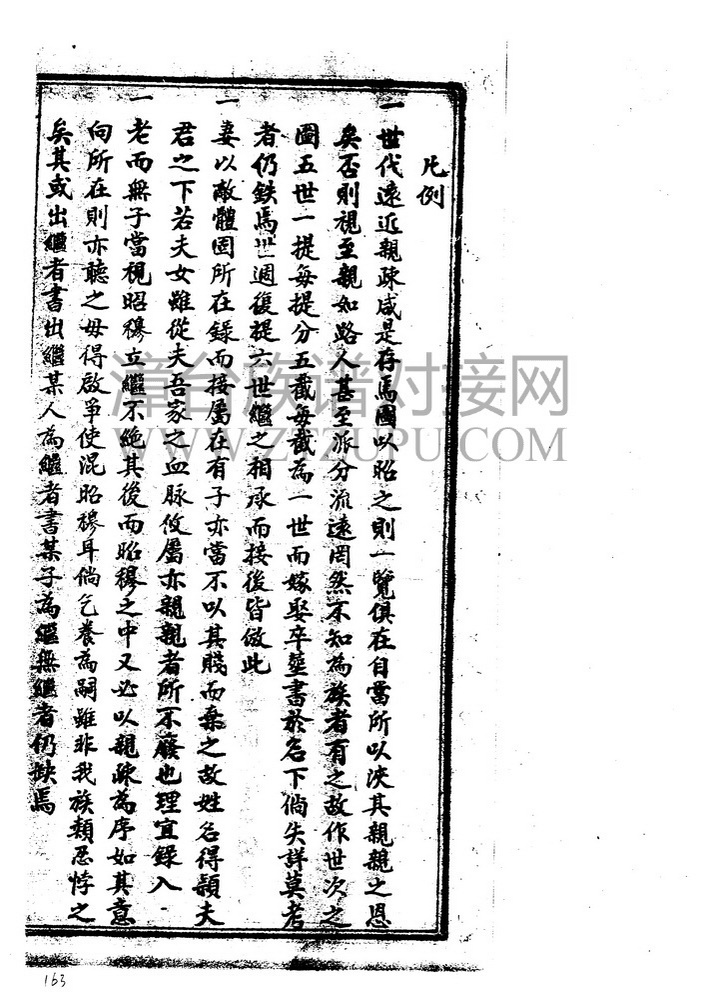 凡例
一世代遠近親疎咸是存焉圖以昭之則一覽俱在自當所以浹其親親之恩
矣否則視至親如路人甚至派分流遠罔然不知為族者有之故作世次之
圖五世一提每提分五截每截為一世而嫁娶卒塟書於名下倘失詳莫考
者仍鉄焉世一週復提六世繼之相承而接後皆倣此
一妻以敵體固所在錄而接屬在有子亦當不以其賤而棄之故姓名得頴夫
君之下若夫女雖從夫吾家之血脉攸屬亦親親者所不廢也理宜錄入
一老而無子當視昭穆立繼不絕其後而昭穆之中又必以親疎為序如其意
向所在則亦聽之毋得啟爭使混昭穆耳倘乞養為嗣雖非我族類忍悖之
矣其或出繼者書出繼某人為繼者書某子為繼無繼者仍缺焉
漳台族谱对接网
WWW.ZTZUPU.COM
163